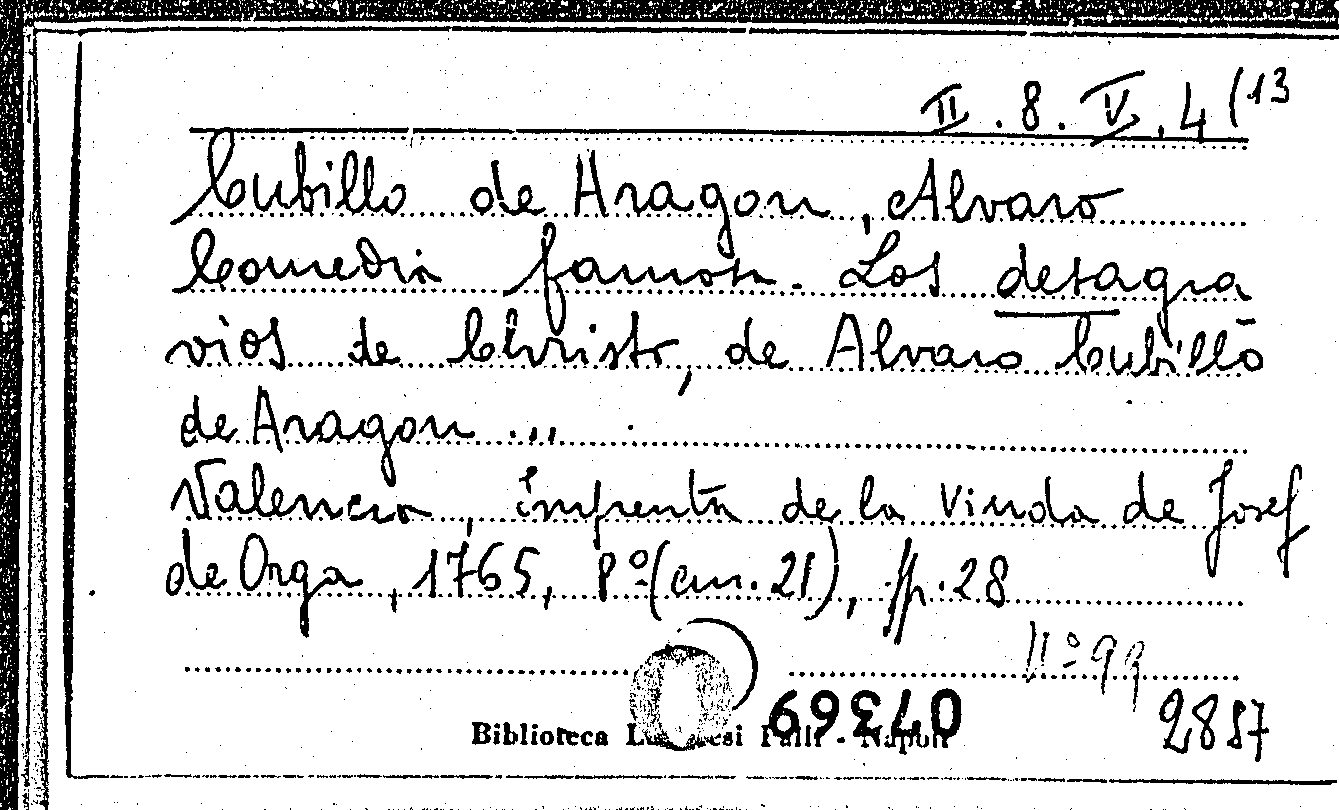 II.8.V.4(13
Cubillo de Aragon, Alvaro
Comedia famosa. Los desagra
vios de Christo, de Alvaro Cubillo
de Aragon ...
Valencia, imprenta de la Viuda de Josef
de Orga, 1765, 8º (cm. 21), pp. 28
Nº 99
2887
Biblioteca Napoli